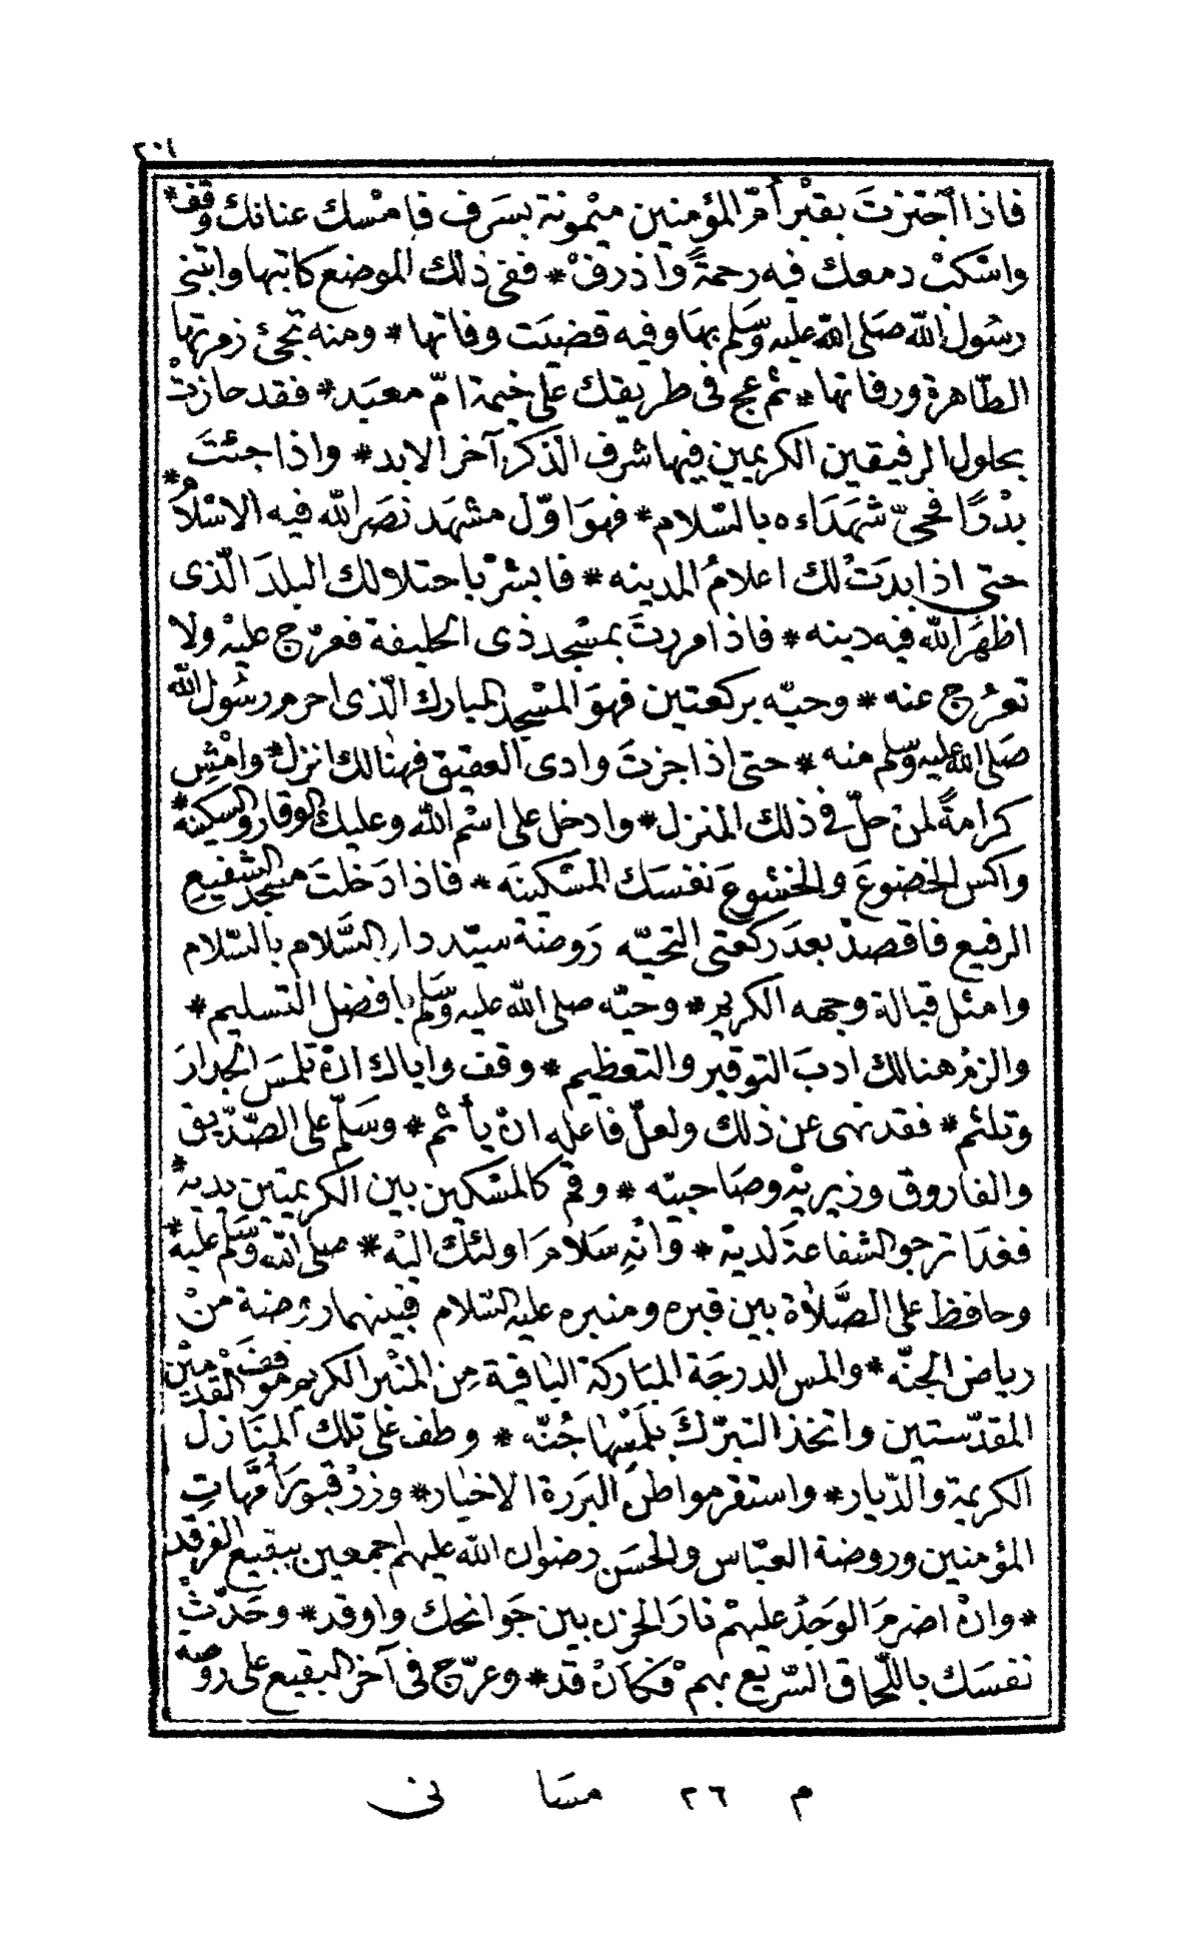 ٢٠١
فاذا اجتزتَ بقبْر أمّ المؤمنين ميْمونة بسَرف فامْسك عنانك وقف*
واسْكبْ دمعك فيه رحمةً واذرفْ* ففى ذلك الموضع كانبها وابتنى
رسُول الله صَلى الله عليه وسَلم بهَا وفيه قضيَت وفاتها* ومنه تجئ زمرتها
الطّاهرة ورفاتها* ثم عج فى طريقك على خيمة امّ معبَد* فقد حازتْ
بحلول الرفيقين الكريمين فيها شرف الذكر آخر الابد* واذا جئتَ
بدْرًا فحىّ شهَدَاءه بالسّلام* فهوَ اوّل مشهَد نصَر الله فيه الاسْلام*
حتى اذا بدَتْ لك اعلامُ المدينه* فابشرْ باحتلالك البلدَ الّذى
اظهَرَ الله فيه دينه* فاذا مررتَ بمسْجد ذى الحليفة فعرّج عليْه ولا
تعرُج عنه* وحيّه بركعتين فهوَ المسْجد المبارك الّذى احرم رسُول الله
صَلى الله عليه وسلم منه* حتى اذا جزتَ وادى العقيق فهنالك انزل* وامْشِ
كرامةً لمنْ حلّ فى ذلك المنزل* وادخل على اسْم الله وعليك الوقار والسكينة*
واكس الخضوعَ والخشوعَ نفسَك المسْكينَه* فاذا دَخلتَ مسجد الشفيع
الرفيع فاقصدْ بعدَ ركعتى التحيّه رَوضة سيّد دار السَّلام بالسّلام
وامثل قبالة وجهه الكريم* وحيّه صلى الله عليه وسَلم بافضل التسليم*
والزمْ هنالك ادبَ التوقير والتعظيم* وقف واياك انْ تلمسَ الجدارَ
وتلثم* فقد نهى عن ذلك ولعلّ فاعله انْ يأثم* وسَلّم على الصّدّيق
والفاروق وزيريْه وصَاحبيّه* وقم كالمسْكين بين الكريميَن يديه*
فغدًا ترجو الشفاعةَ لديْه* وانْهِ سَلامَ اولئك اليْه* صلى الله وسَلّم عليْه*
وحافظ على الصَّلاة بين قبره ومنبره عليْه السّلام فبينهما روضة منْ
رياض الجنّه* والمس الدرجَة المبَاركة البَاقية مِن المنبر الكريم موقفَ القدمَيْن
المقدّستين واتخذ التبرّكَ بلمسْها جُنّه* وطف على تلك المنَازل
الكريمة والدّيار* واستقر مواطنَ البَررة الاخيار* وزرْ قبورَ أمّهاتِ
المؤمنين وروضة العبّاس والحسَن رضوان الله عليهم اجمعين ببقيع الغرقد
*وانْ اضرمَ الوَجدُ عليهمْ نارَ الحزن بين جَوانحك واوقد* وحَدّثْ
نفسَك باللّحاق السّريع بهمْ فكأنْ قد* وعرّج فى آخر البقيع على روضة
م ٢٦ مسَا نى